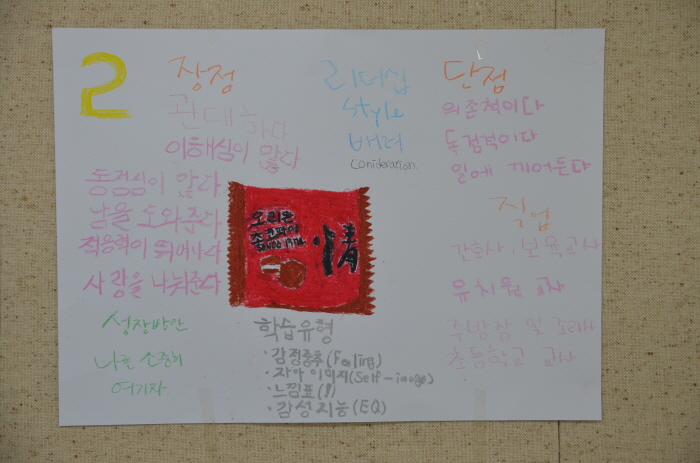 2
장점
관대하다
이해심이 많다
동정심이 많다
남을 도와준다
적응력이 뛰어나다
사랑을 나눠준다
성장방안
나를 소중히
여기자
리더십
style
배려
conideration
오리온
초코파이
情
학습유형
·감정중추(Feeling)
·자아 이미지(Self-image)
·느낌표(!)
·감성지능(EQ)
단점
의존적이다
독점적이다
일에 끼어든다
직업
간호사, 보육교사
유치원 교사
주방장 및 조리사
초등학교 교사